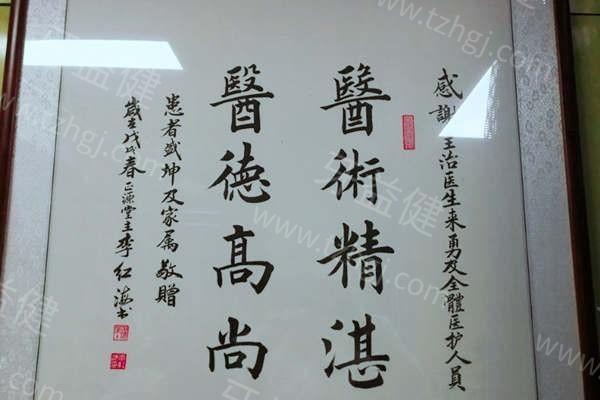 感謝主治医生来勇及全體医护人員
醫術精湛
醫德高尚
患者武坤及家属敬贈
歲在戊戌春正源堂主李红海书
牙益健
www.tzhgj.com